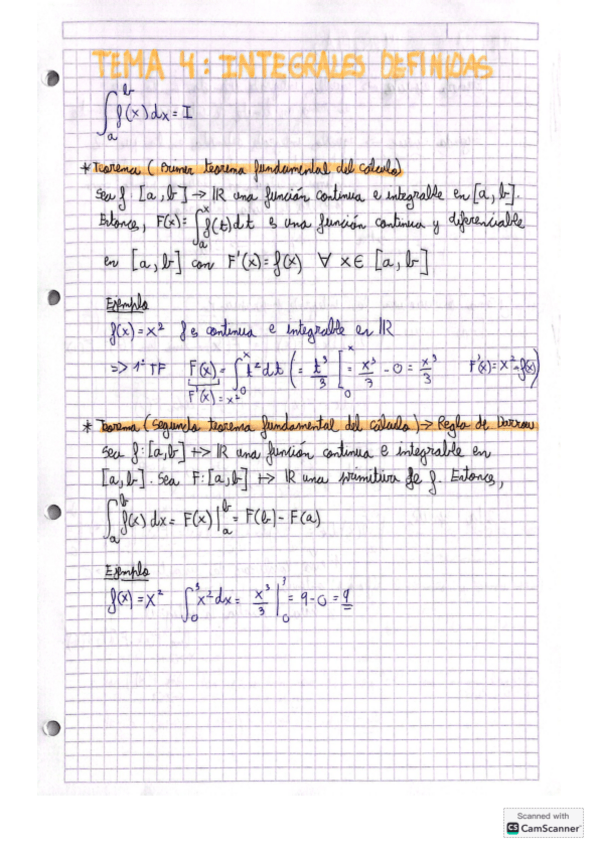 TEMA 4: INTEGRALES DEFINIDAS
∫_a^b f(x)dx = I
* Teorema (Primer teorema fundamental del cálculo)
Sea f: [a,b] → ℝ una función continua e integrable en [a,b].
Entonces, F(x) = ∫_a^x f(t)dt es una función continua y diferenciable
en [a,b] con F'(x) = f(x) ∀ x ∈ [a,b]
Ejemplo
f(x) = x² f es continua e integrable en ℝ
=> 1º TF F(x) = ∫_0^x t² dt (= t³/3 [_0^x = x³/3 - 0 = x³/3 F'(x) = x² = f(x))
F'(x) = x²
* Teorema (Segundo teorema fundamental del cálculo) → Regla de Barrow
Sea f: [a,b] ↦ ℝ una función continua e integrable en
[a,b]. Sea F: [a,b] ↦ ℝ una primitiva de f. Entonces,
∫_a^b f(x) dx = F(x) |_a^b = F(b) - F(a)
Ejemplo
f(x) = x² ∫_0^3 x² dx = x³/3 |_0^3 = 9 - 0 = 9
Scanned with
CS CamScanner